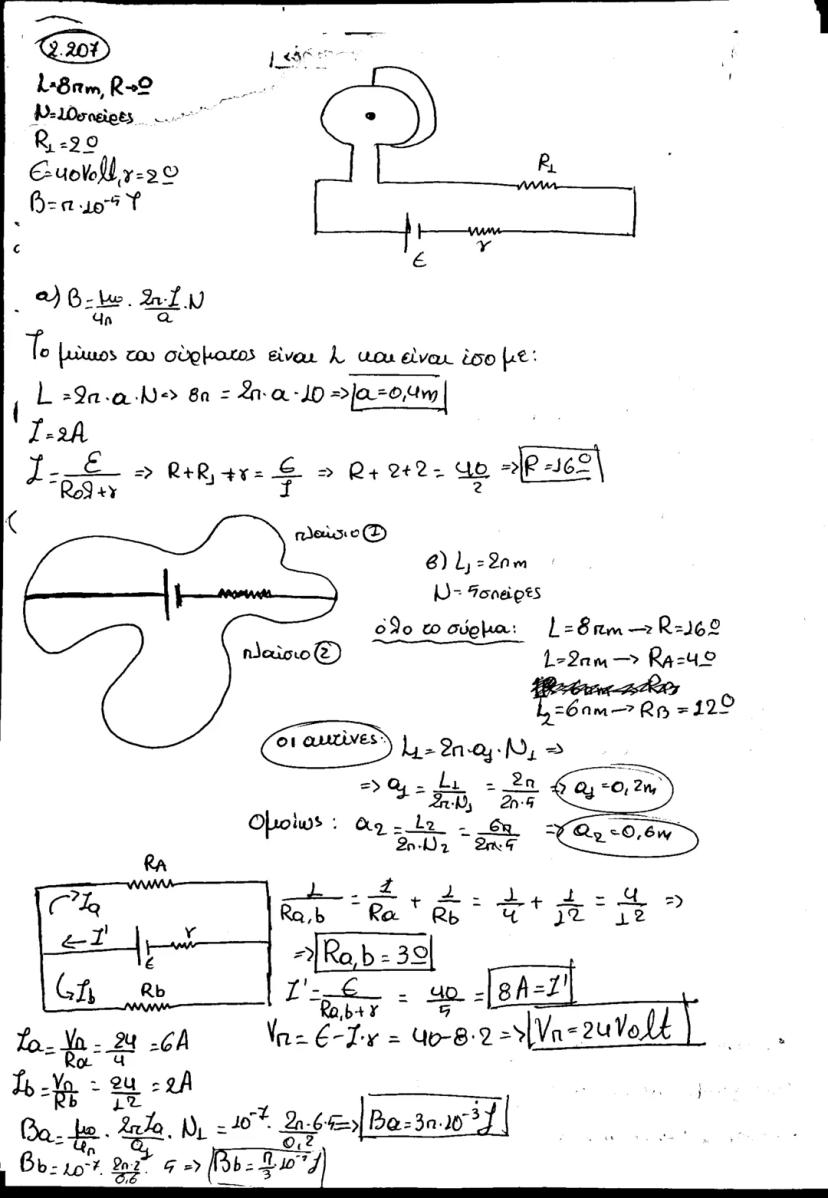 2.207
L=8πm, R→Ω
N=10σπείρες
R₁=2Ω
ε=40Volt, r=2Ω
B=π·10⁻⁵ T
R₁
ε
r
α) B=μ₀/4π · 2π·I/a ·N
Το μήκος του σύρματος είναι L και είναι ίσο με:
L=2π·a·N=> 8π = 2π·a·10 => a=0,4m
I=2A
I=ε/Rολ+r => R+R₁+r = ε/I => R+2+2= 40/2 => R=16Ω
πλαίσιο ①
πλαίσιο ②
β) L₁=2πm
N=5σπείρες
όλο το σύρμα: L=8πm → R=16Ω
L=2πm → RA=4Ω
L₂=6πm → RB=12Ω
οι ακτίνες: L₁=2π·a₁·N₁ =>
=> a₁ = L₁/2π·N₁ = 2π/2π·5 => a₁=0,2m
Ομοίως: a₂ = L₂/2π·N₂ = 6π/2π·5 => a₂=0,6m
RA
Ia
I'
ε
r
Ib
Rb
1/Ra,b = 1/Ra + 1/Rb = 1/4 + 1/12 = 4/12 =>
=> Ra,b=3Ω
I' = ε/Ra,b+r = 40/5 = 8A=I'
Vπ = ε-I·r = 40-8·2 => Vπ=24Volt
Ia = Vπ/Ra = 24/4 = 6A
Ib = Vπ/Rb = 24/12 = 2A
Ba = μ₀/4π · 2πIa/a₁ · N₁ = 10⁻⁷ · 2π·6·5/0,2 => Ba=3π·10⁻⁵T
Bb = 10⁻⁷ · 2π·2/0,6 · 5 => Bb = π/3 10⁻⁵T